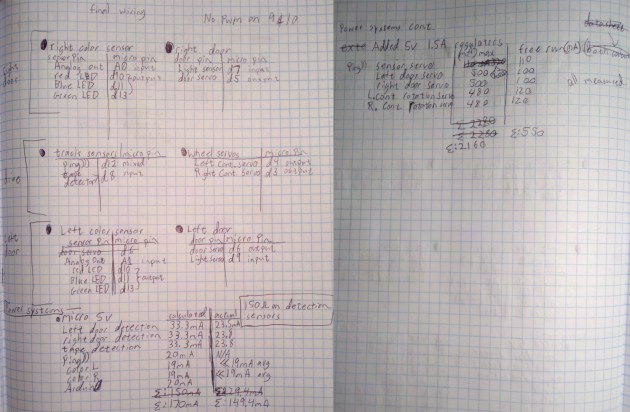 final wiring
No Pwm on 9 & 10
right color sensor
sensor pin micro pin
Analog out A0 input
red LED d10 output
Blue LED d11
Green LED d13
right door
door pin micro pin
light sensor d7 input
door servo d5 output
sensor micro pin
Ping)) d12 mixed
tape detector d8 input
wheel servo micro pin
Left Cont. servo d4 output
Right Cont. servo d3 output
Left color sensor
sensor pin micro pin
door servo d6
Analog Out A1 input
red LED d10
Blue LED d11 output
Green LED d13
Left door
door pin micro pin
door servo d6 output
Light sensor d9 input
Power systems
micro 5V calculated actual
150Ω on detection sensors
Left door detection 33.3mA 23.5mA
right door detection 33.3mA 23.8
tape detection 33.3mA 23.8
Ping)) 20mA N/A
Color L 19mA <<19mA avg
Color R 19mA <<19mA avg
Arduino 20mA
Σ:150mA
Σ:170mA Σ:149.4mA
Power systems cont.
Added 5V 1.5A regulators
(mA) max
free run (mA)
Ping)) sensor servo 110
Left door servo 500 100
right door servo 500 100
L. Cont. rotation servo 480 120
R. Cont. rotation servo 480 120
Σ 2260
Σ:2160 Σ:550